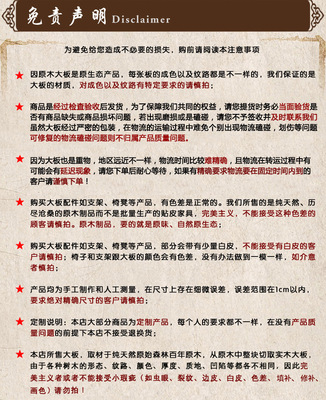 免责声明 Disclaimer
为避免给您造成不必要的损失，购前请阅读本注意事项
因原木大板是原生态产品，每张板的成色以及纹路都是不一样的，我们保证的是
大板的材质，对成色以及纹路有特定要求的请慎拍；
商品是经过检查验收后发货，为了保障我们共同的权益，请您提货时务必当面验货是
否有商品缺失或商品损坏问题，若出现磨损或是磕碰，请您不予签收并及时联系我们
虽然大板经过严密的包装，在物流的运输过程中难免个别出现物流磕碰，划伤等问题
可修复的物流磕碰问题则不归属产品质量问题。
因为大板也是重物，地区远近不一样，物流时间比较难精确，且物流在转运过程中有
可能会有延迟现象，请您下单后耐心等待，如果有精确要求物流要在固定时间内到的
客户请谨慎下单！
购买大板配件如支架、椅凳等产品，有色差是正常的。我们所售的是纯天然、历
尽沧桑的原木制品而不是批量生产的贴皮家具，完美主义，不能接受这种色差的
顾客请慎拍。原木制品，要的就是原味、自然原生态；
购买大板配件如支架、椅凳等产品，部分会带有少量白皮，不能接受有白皮的客
户请慎拍；椅子和支架跟大板的颜色会有色差，没有办法做到一模一样，如介意
者慎拍；
产品均为手工制作和人工测量，在尺寸上存在细微误差，误差范围在1cm以内，
要求绝对精确尺寸的客户请慎拍；
定制说明：本店大部分商品为定制产品，每个人的要求都不一样，在没有产品质
量问题的前提下本店不接受退换货；
本店所售大板，取材于纯天然原始森林百年原木，从原木中整块切取实木大板，
由于各种树木的形态、纹路、颜色、厚度、质地、凹陷等都各不相同，因此完
美主义者或者不能接受小瑕疵（如虫眼、裂纹、边皮、白皮、色差、填补、修补、
画色）请勿拍！